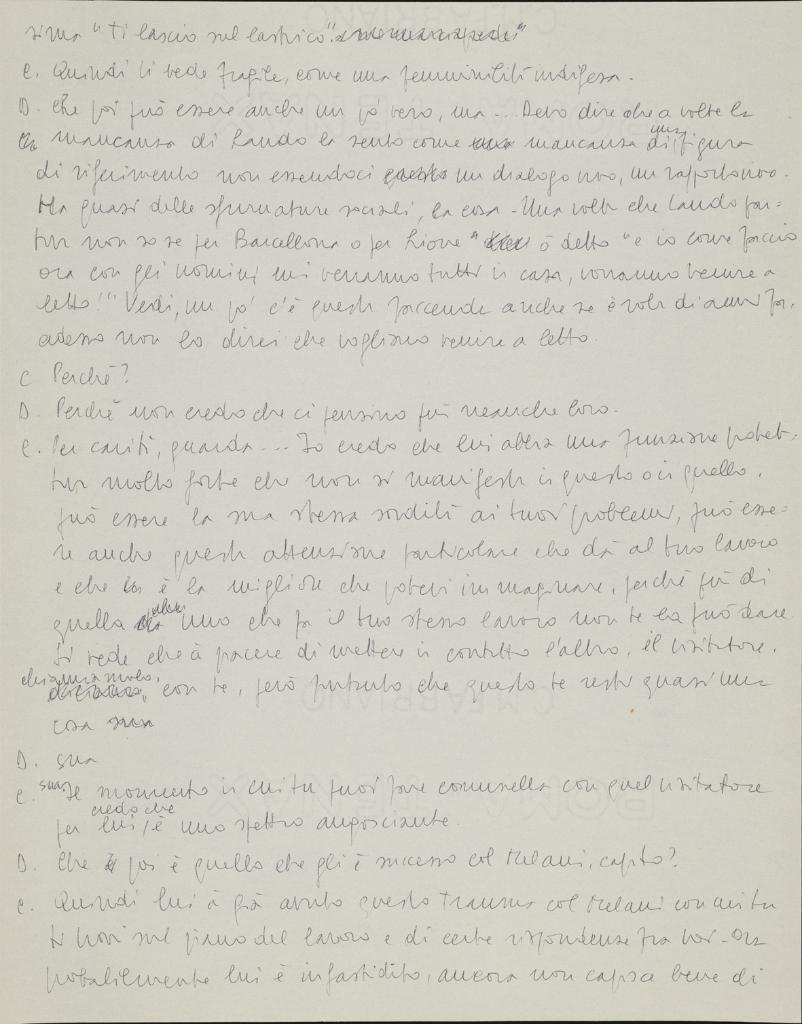 sima "ti lascio sul lastrico".
C. Quindi ti vede fragile, come una femminilità indifesa.
D. Che poi può essere anche un pò vero, ma... Devo dire che a volte la
mancanza di Lando la sento come mancanza di una figura
di riferimento non essendoci un dialogo vivo, un rapporto vivo.
Ma quasi delle sfumature sociali, la cosa. Una volta che Lando par=
tiva non so se per Barcellona o per Lione ò detto "e io come faccio
ora con gli uomini mi verranno tutti in casa, vorranno venire a
letto!" Vedi, un pò c'è questa faccenda anche se è roba di anni fa,
adesso non lo direi che vogliano venire a letto.
C Perché?
D. Perché non credo che ci pensino più neanche loro.
C. Per carità, guarda... Io credo che lui abbia una funzione protet=
tiva molto forte che non si manifesta in questo o in quello,
può essere la sua stessa sordità ai tuoi problemi, può esse=
re anche questa attenzione particolare che dà al tuo lavoro
e che è la migliore che potevi immaginare, perché più di
quella uno che fa il tuo stesso lavoro non te la può dare.
Si vede che à piacere di mettere in contatto l'altro, il visitatore,
chiamiamolo, con te, però pretende che questo te resti quasi una
cosa sua
D. sua
C. sua. Se momento in cui tu puoi fare comunella con quel visitatore
per lui credo che è uno spettro angosciante.
D. Che poi è quello che gli è successo col Milani, capito?
C. Quindi lui à già avuto questo trauma col Milani con cui tu
ti trovi sul piano del lavoro e di certe rispondenze fra voi. Ora
probabilmente lui è infastidito, ancora non capisce bene di